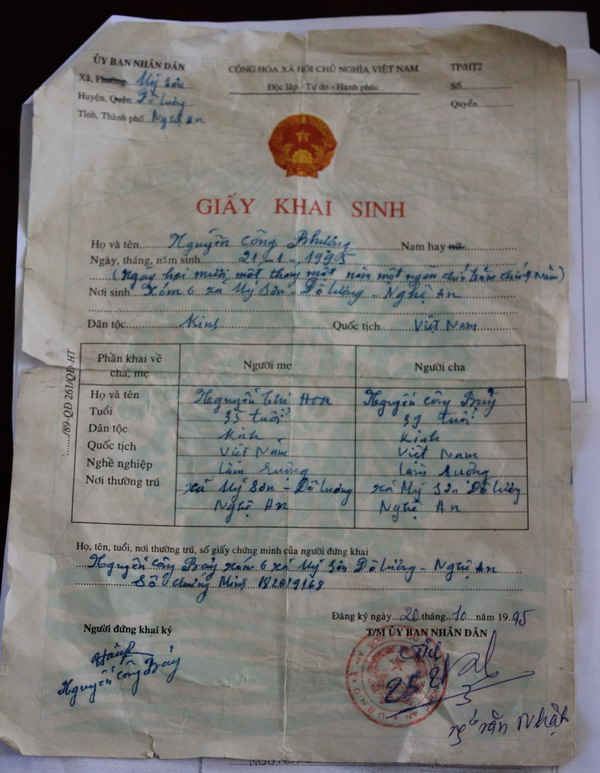 ỦY BAN NHÂN DÂN
Xã, Phường Mỹ Sơn
Huyện, Quận Đô Lương
Tỉnh, Thành phố Nghệ An
CỘNG HÒA XÃ HỘI CHỦ NGHĨA VIỆT NAM
Độc lập - Tự do - Hạnh phúc
TP/HT2
Số
Quyển
GIẤY KHAI SINH
Họ và tên Nguyễn Công Phượng Nam hay nữ
Ngày, tháng, năm sinh 21-1-1995
(Ngày hai mươi một tháng một năm một ngàn chín trăm chín năm)
Nơi sinh Xóm 6 xã Mỹ Sơn - Đô Lương - Nghệ An
Dân tộc Kinh Quốc tịch Việt Nam
Phần khai về cha, mẹ Người mẹ Người cha
Họ và tên Nguyễn Thị Hoa Nguyễn Công Bảy
Tuổi 35 tuổi 39 tuổi
Dân tộc Kinh Kinh
Quốc tịch Việt Nam Việt Nam
Nghề nghiệp Làm ruộng Làm ruộng
Nơi thường trú xã Mỹ Sơn - Đô Lương xã Mỹ Sơn Đô Lương
Nghệ An Nghệ An
Họ, tên, tuổi, nơi thường trú, số giấy chứng minh của người đứng khai
Nguyễn Công Bảy xóm 6 xã Mỹ Sơn Đô Lương - Nghệ An
Số chứng minh
Đăng ký ngày 20 tháng 10 năm 1995
Người đứng khai ký
T/M ỦY BAN NHÂN DÂN
Nguyễn Công Bảy
/89-QĐ 261/QĐ.HT